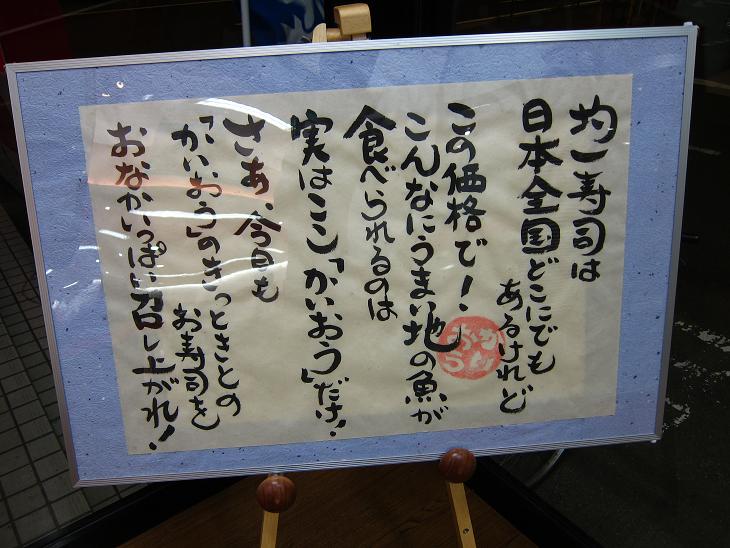 均一寿司は
日本全国どこにでも
あるけれど
この価格で!
こんなにうまい地の魚が
食べられるのは
実はここ「かいおう」だけ!
さあ、今日も
「かいおう」のきっときとの
お寿司を
おなかいっぱい召し上がれ!